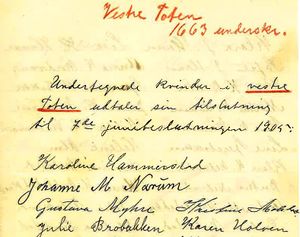 Vestre Toten
1663 underskr.
Undertegnede kvinder i vestre
Toten udtaler sin tilslutning
til 7de junibeslutningen 1905:
Karoline Hammerstad
Johanne M Narum
Gustava Myhre Kristine
Julie Brobakken Karen Holven